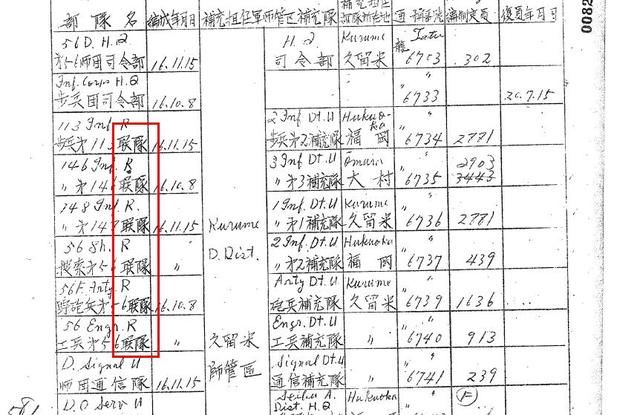 部隊名 編成年月日 補充担任軍師管区補充隊 編制定員 復員年月日
0082
56 D. H.Q H.Q Kurume
师团司令部 16.11.15 司令部 久留米 6703 302
Inf. Corps H.Q "
步兵团司令部 16.10.8 6733 20.7.15
113 Inf. R 2 Inf Dt. U Hukuo-ka "
步兵才113联隊 16.11.15 步兵才2補充隊 福岡 6734 2781
146 Inf. R 3 Inf Dt. U Omura " 2903
" 才146联隊 16.10.8 " 才3補充隊 大村 6735 3443
148 Inf. R 1 Inf Dt. U Kurume "
" 才148联隊 16.11.15 Kurume " 才1補充隊 久留米 6736 2781
56 Sh. R D. Dist. 2 Inf. Dt. U Hukuoka "
搜索才56联隊 " " 才2補充隊 福岡 6737 439
56 F. Arty R Arty Dt. U Kurume "
野砲兵才56联隊 16.10.8 砲兵補充隊 久留米 6739 1636
56 Engr. R Engr. Dt. U "
工兵才56联隊 " 久留米 工兵補充隊 6740 913
D. Signal U 師管區 Signal Dt. U "
师团通信隊 16.11.15 通信補充隊 6741 239
D. O Serv U Seibu A. Hukuoka F
Dist. H.Q